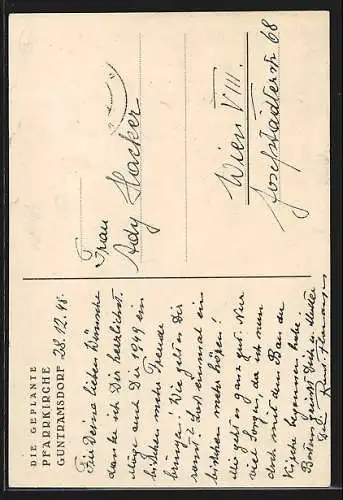 DIE GEPLANTE
PFARRKIRCHE
GUNTRAMSDORF 28.12.48.
Für Deine lieben Wünsche
danke ich Dir herzlichst.
Möge auch Dir 1949 ein
bisschen mehr Freude
bringen! Wie geht es Dir
sonst? Lass einmal ein
bisschen mehr hören!
Mir geht es ganz gut. Nur
viel Sorgen, da ich nun
doch mit dem Bau der
Kirche begonnen habe
grüsst Dich u. Mutter
Dein
Frau
Ady Hacker
Wien VIII.
Josefstädterstr 68